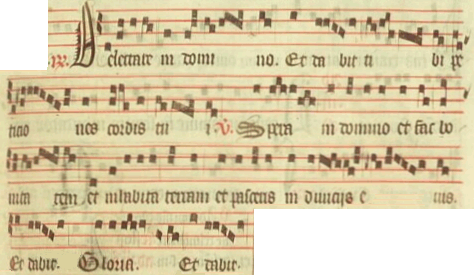 ℟. Delectare in domi no. Et da bit ti bi pe
titio nes cordis tu i ℣. Spera in domino et fac bo
nita tem et inhabita terram et pasceris in diviciis e ius.
Et dabit. Gloria. Et dabit.